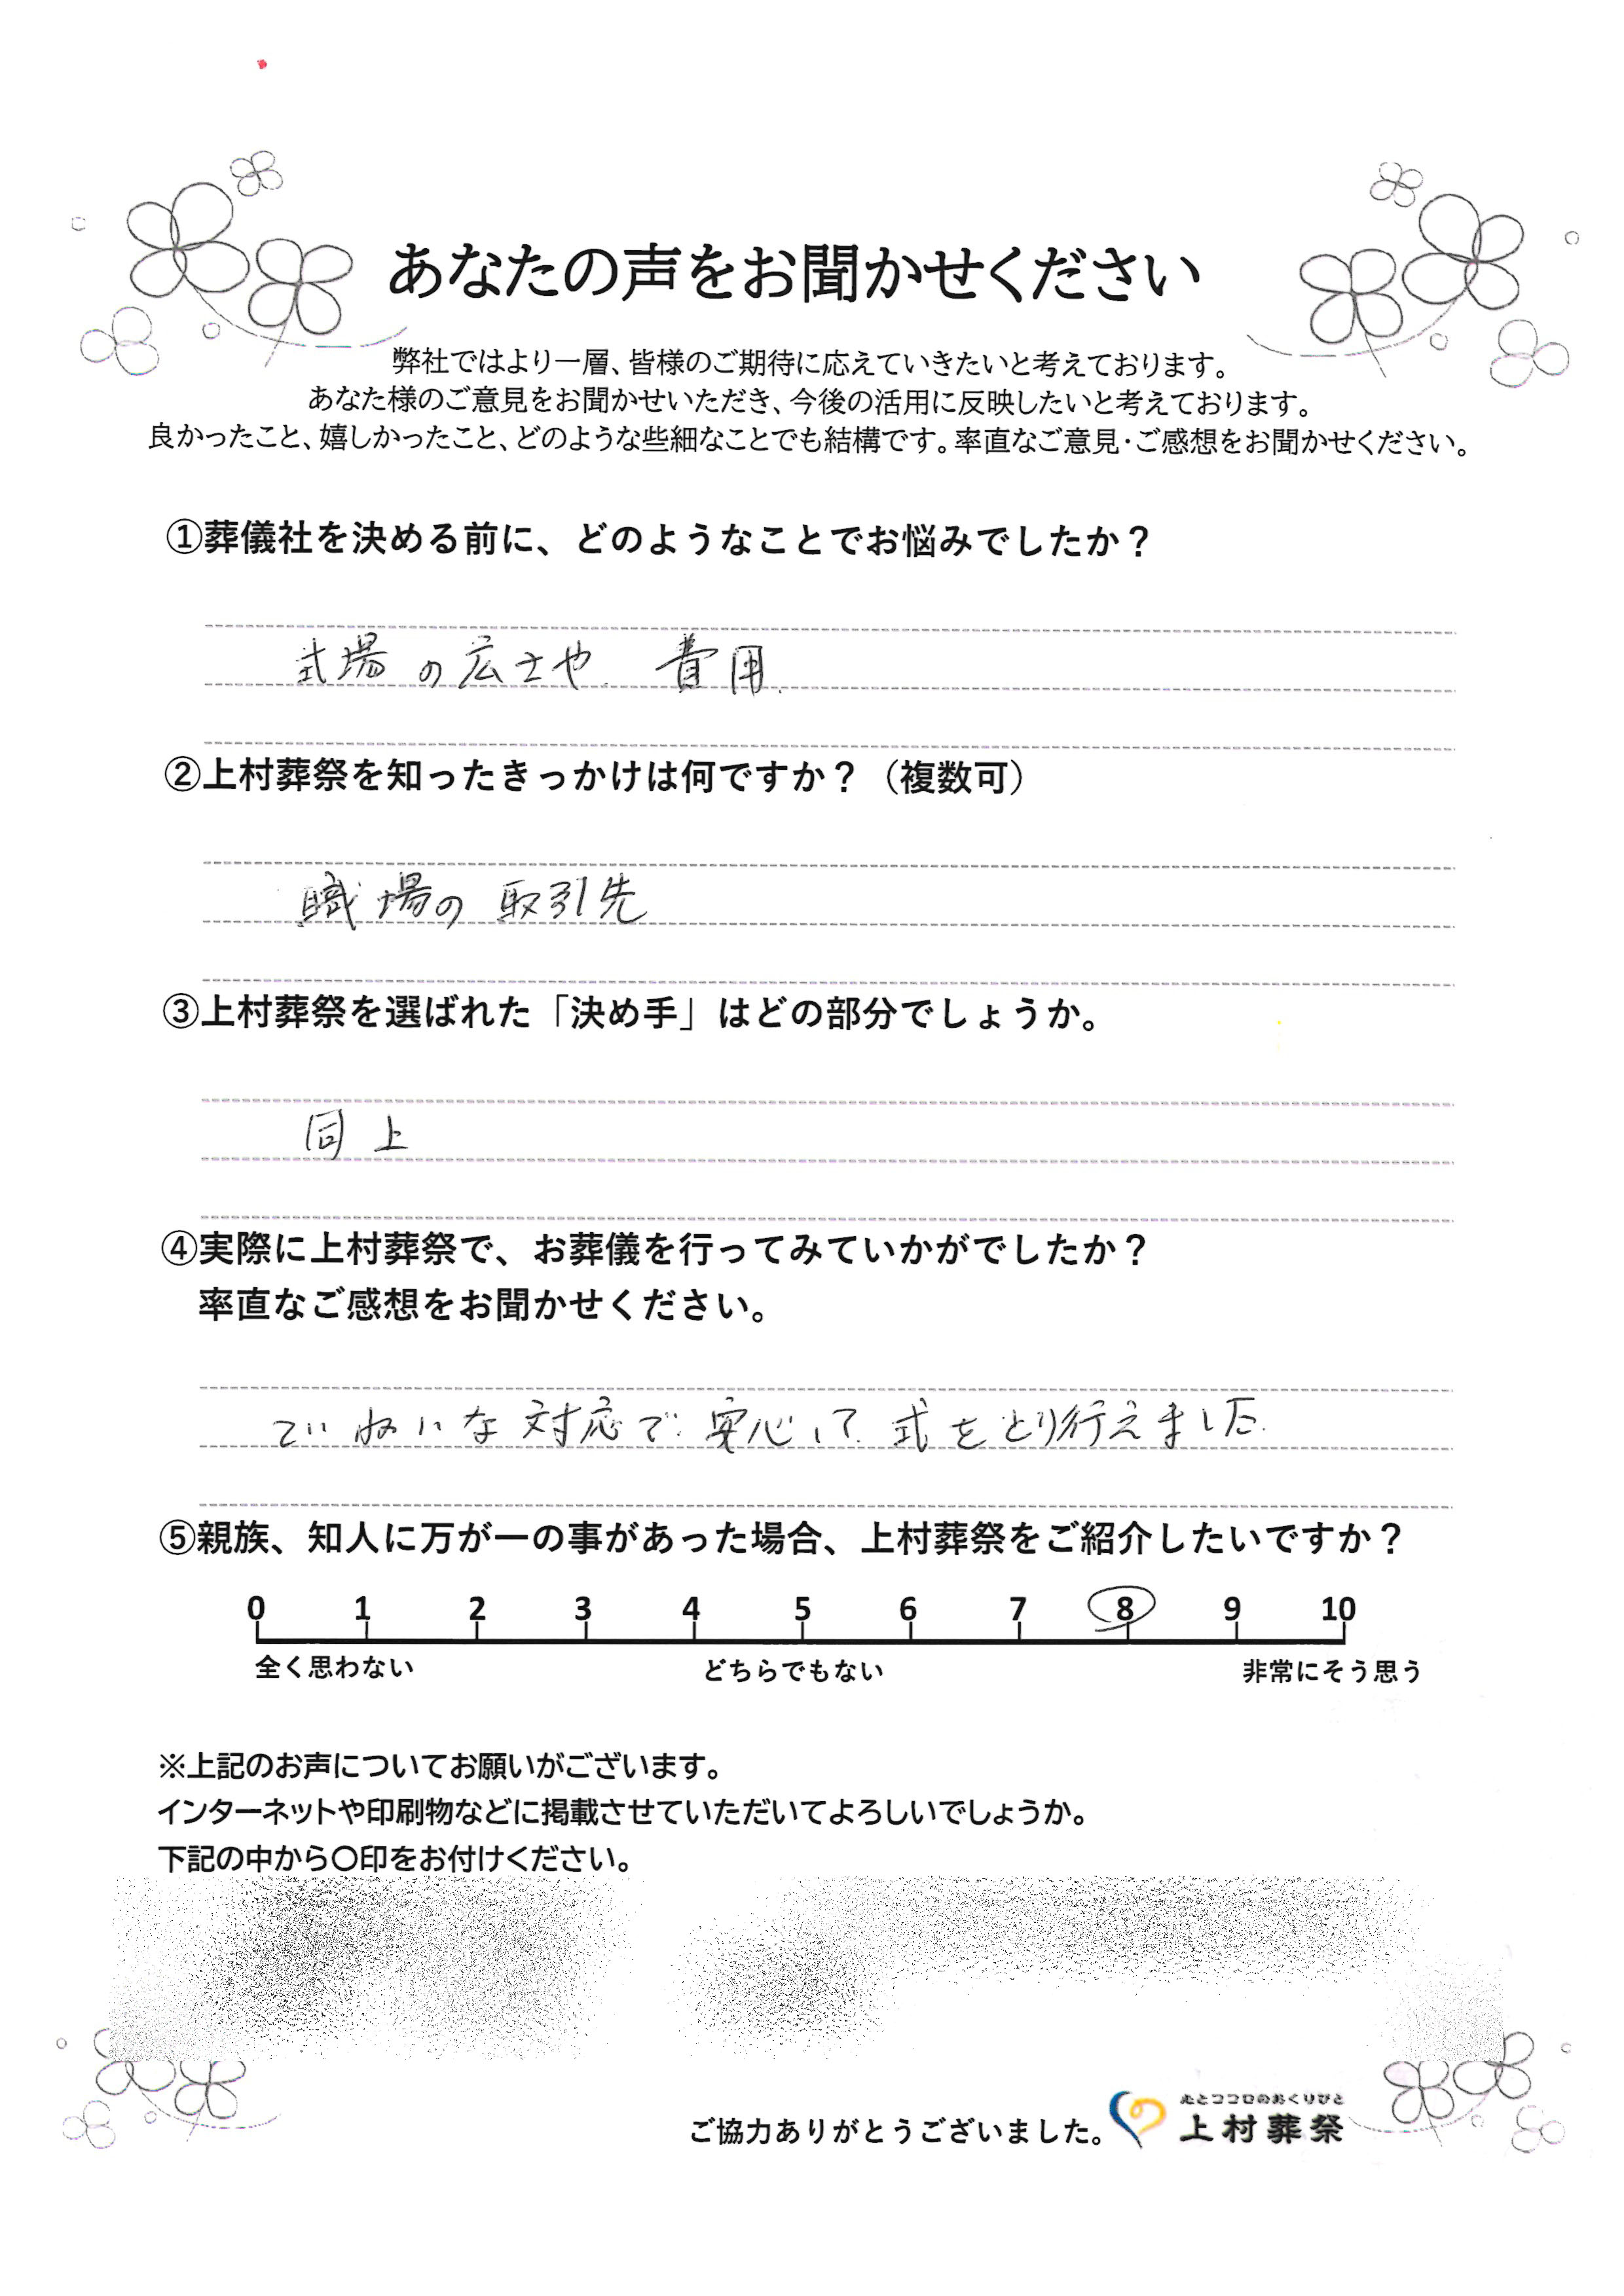 あなたの声をお聞かせください
弊社ではより一層、皆様のご期待に応えていきたいと考えております。
あなた様のご意見をお聞かせいただき、今後の活用に反映したいと考えております。
良かったこと、嬉しかったこと、どのような些細なことでも結構です。率直なご意見・ご感想をお聞かせください。
①葬儀社を決める前に、どのようなことでお悩みでしたか？
式場の広さや、費用、
②上村葬祭を知ったきっかけは何ですか？（複数可）
職場の取引先
③上村葬祭を選ばれた「決め手」はどの部分でしょうか。
同上
④実際に上村葬祭で、お葬儀を行ってみていかがでしたか？
率直なご感想をお聞かせください。
ていねいな対応で安心して式をとり行えました。
⑤親族、知人に万が一の事があった場合、上村葬祭をご紹介したいですか？
0 1 2 3 4 5 6 7 8 9 10
全く思わない どちらでもない 非常にそう思う
※上記のお声についてお願いがございます。
インターネットや印刷物などに掲載させていただいてよろしいでしょうか。
下記の中から〇印をお付けください。
心とココロのおくりびと
ご協力ありがとうございました。 上村葬祭